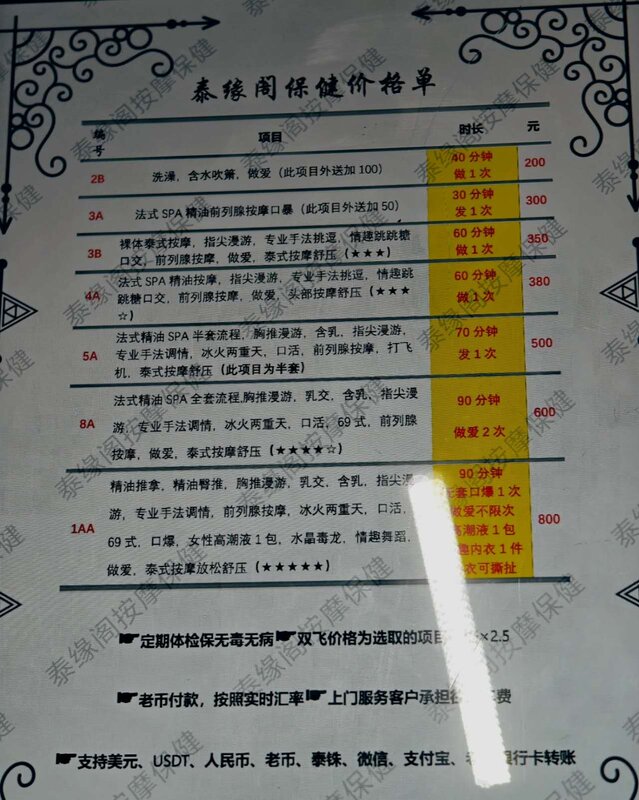 泰缘阁保健价格单
编号 项目 时长 元
2B 洗澡，含水吹箫，做爱（此项目外送加100） 40分钟 做1次 200
3A 法式SPA精油前列腺按摩口暴（此项目外送加50） 30分钟 发1次 300
3B 裸体泰式按摩，指尖漫游，专业手法挑逗，情趣跳跳糖 60分钟 350
口交，前列腺按摩，做爱，泰式按摩舒压（★★★） 做1次
4A 法式SPA精油按摩，指尖漫游，专业手法挑逗，情趣跳 60分钟 380
跳糖口交，前列腺按摩，做爱，头部按摩舒压（★★★ 做1次
☆）
5A 法式精油SPA半套流程，胸推漫游，含乳，指尖漫游， 70分钟 500
专业手法调情，冰火两重天，口活，前列腺按摩，打飞 发1次
机，泰式按摩舒压（此项目为半套）
8A 法式精油SPA全套流程,胸推漫游，乳交，含乳，指尖漫 90分钟 600
游，专业手法调情，冰火两重天，口活，69式，前列腺 做爱2次
按摩，做爱，泰式按摩舒压（★★★★☆）
1AA 精油推拿，精油臀推，胸推漫游，乳交，含乳，指尖漫 90分钟 800
游，专业手法调情，前列腺按摩，冰火两重天，口活， 套口爆1次
69式，口爆，女性高潮液1包，水晶毒龙，情趣舞蹈， 做爱不限次
做爱，泰式按摩放松舒压（★★★★★） 高潮液1包
趣内衣1件
衣可撕扯
☛定期体检保无毒无病☛双飞价格为选取的项目 ×2.5
☛老币付款，按照实时汇率☛上门服务客户承担 费
☛支持美元、USDT、人民币、老币、泰铢、微信、支付宝、 行卡转账
泰缘阁按摩保健